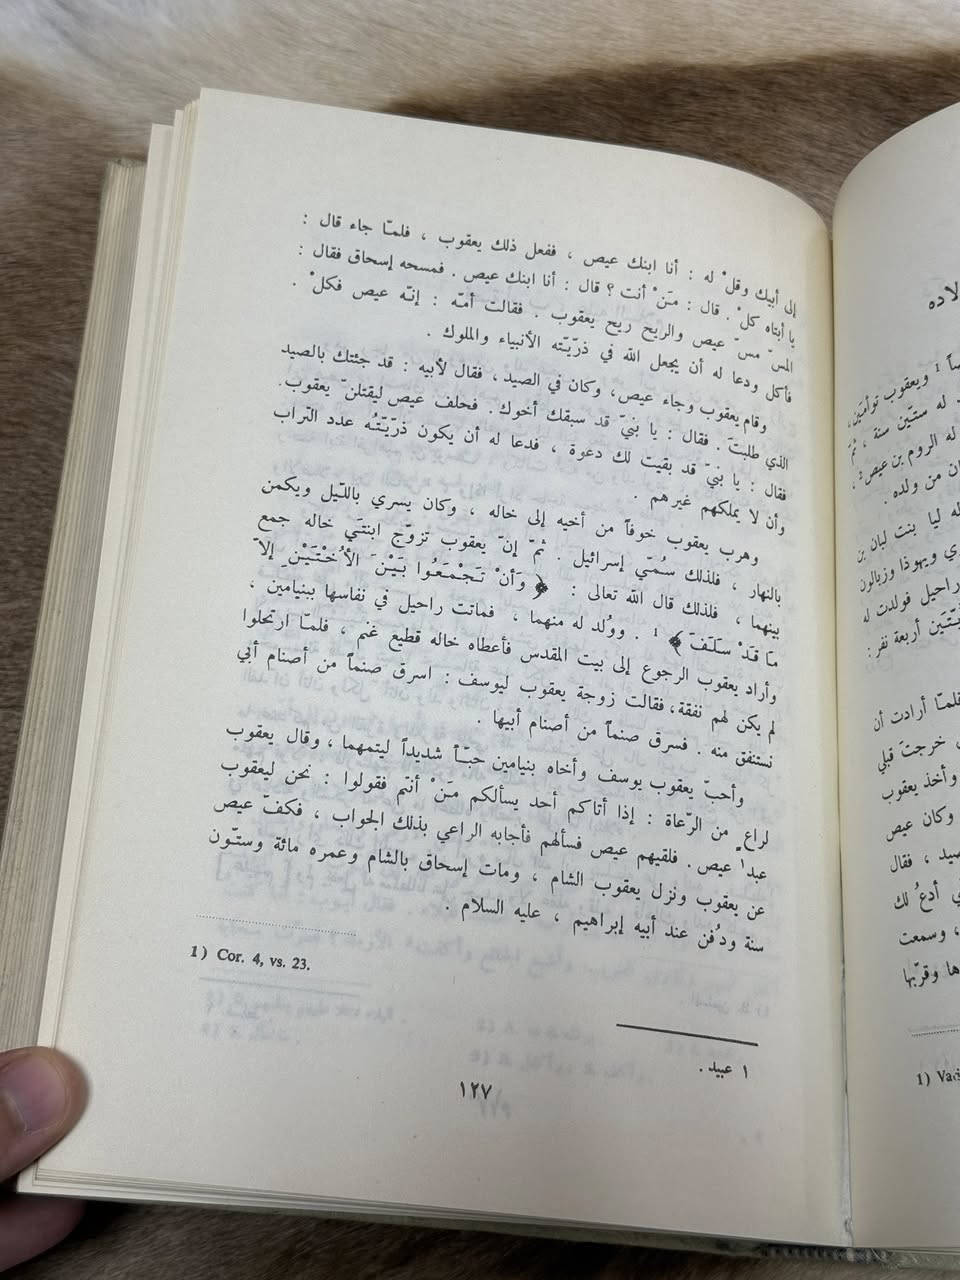 إلى أبيك وقلْ له : أنا ابنك عيص ، ففعل ذلك يعقوب ، فلمّا جاء قال :
يا أبتاه كلْ . قال : مَنْ أنت ؟ قال : أنا ابنك عيص . فمسحه إسحاق فقال :
المسّ مسّ عيص والريح ريح يعقوب . فقالت أمّه : إنّه عيص فكلْ .
فأكل ودعا له أن يجعل الله في ذرّيّته الأنبياء والملوك .
وقام يعقوب وجاء عيص، وكان في الصيد، فقال لأبيه : قد جئتك بالصيد
الذي طلبتَ . فقال : يا بنيّ قد سبقك أخوك . فحلف عيص ليقتلنّ يعقوب.
فقال : يا بنيّ قد بقيت لك دعوة ، فدعا له أن يكون ذرّيّتُه عدد التراب
وأن لا يملكهم غيرهم .
وهرب يعقوب خوفاً من أخيه إلى خاله ، وكان يسري باللّيل ويكمن
بالنهار ، فلذلك سُمّي إسرائيل . ثمّ إنّ يعقوب تزوّج ابنتَي خاله جمع
بينهما ، فلذلك قال الله تعالى : ﴿ وَأَنْ تَجْمَعُوا بَيْنَ الْأُخْتَيْنِ إلاّ
مَا قَدْ سَلَفَ ﴾ 1 . ووُلد له منهما ، فماتت راحيل في نفاسها ببنيامين ،
وأراد يعقوب الرجوع إلى بيت المقدس فأعطاه خاله قطيع غنم ، فلمّا ارتحلوا
لم يكن لهم نفقة، فقالت زوجة يعقوب ليوسف : اسرق صنماً من أصنام أبي
نستنفق منه . فسرق صنماً من أصنام أبيها .
وأحبّ يعقوب يوسف وأخاه بنيامين حبّاً شديداً ليتمهما، وقال يعقوب
لراع من الرّعاة : إذا أتاكم أحد يسألكم مَنْ أنتم فقولوا : نحن ليعقوب
عبد١ عيص. فلقيهم عيص فسألهم فأجابه الراعي بذلك الجواب ، فكفّ عيص
عن يعقوب ونزل يعقوب الشام ، ومات إسحاق بالشام وعمره مائة وستّون
سنة ودُفن عند أبيه إبراهيم ، عليه السلام .
1) Cor. 4, vs. 23.
١ عبيد .
١٢٧
لاده
ويعقوب توأمين،
له ستّين سنة ، ثمّ
له الروم بن عيص2 ،
من ولده .
له ليا بنت لبان بن
ويهوذا وزبالون
راحيل فولدت له
أربعة نفر :
فلمّا أرادت أن
خرجتَ قبلي
وأخذ يعقوب
وكان عيص
صيد ، فقال
أدعُ لك
، وسمعت
وقرّبها
1)